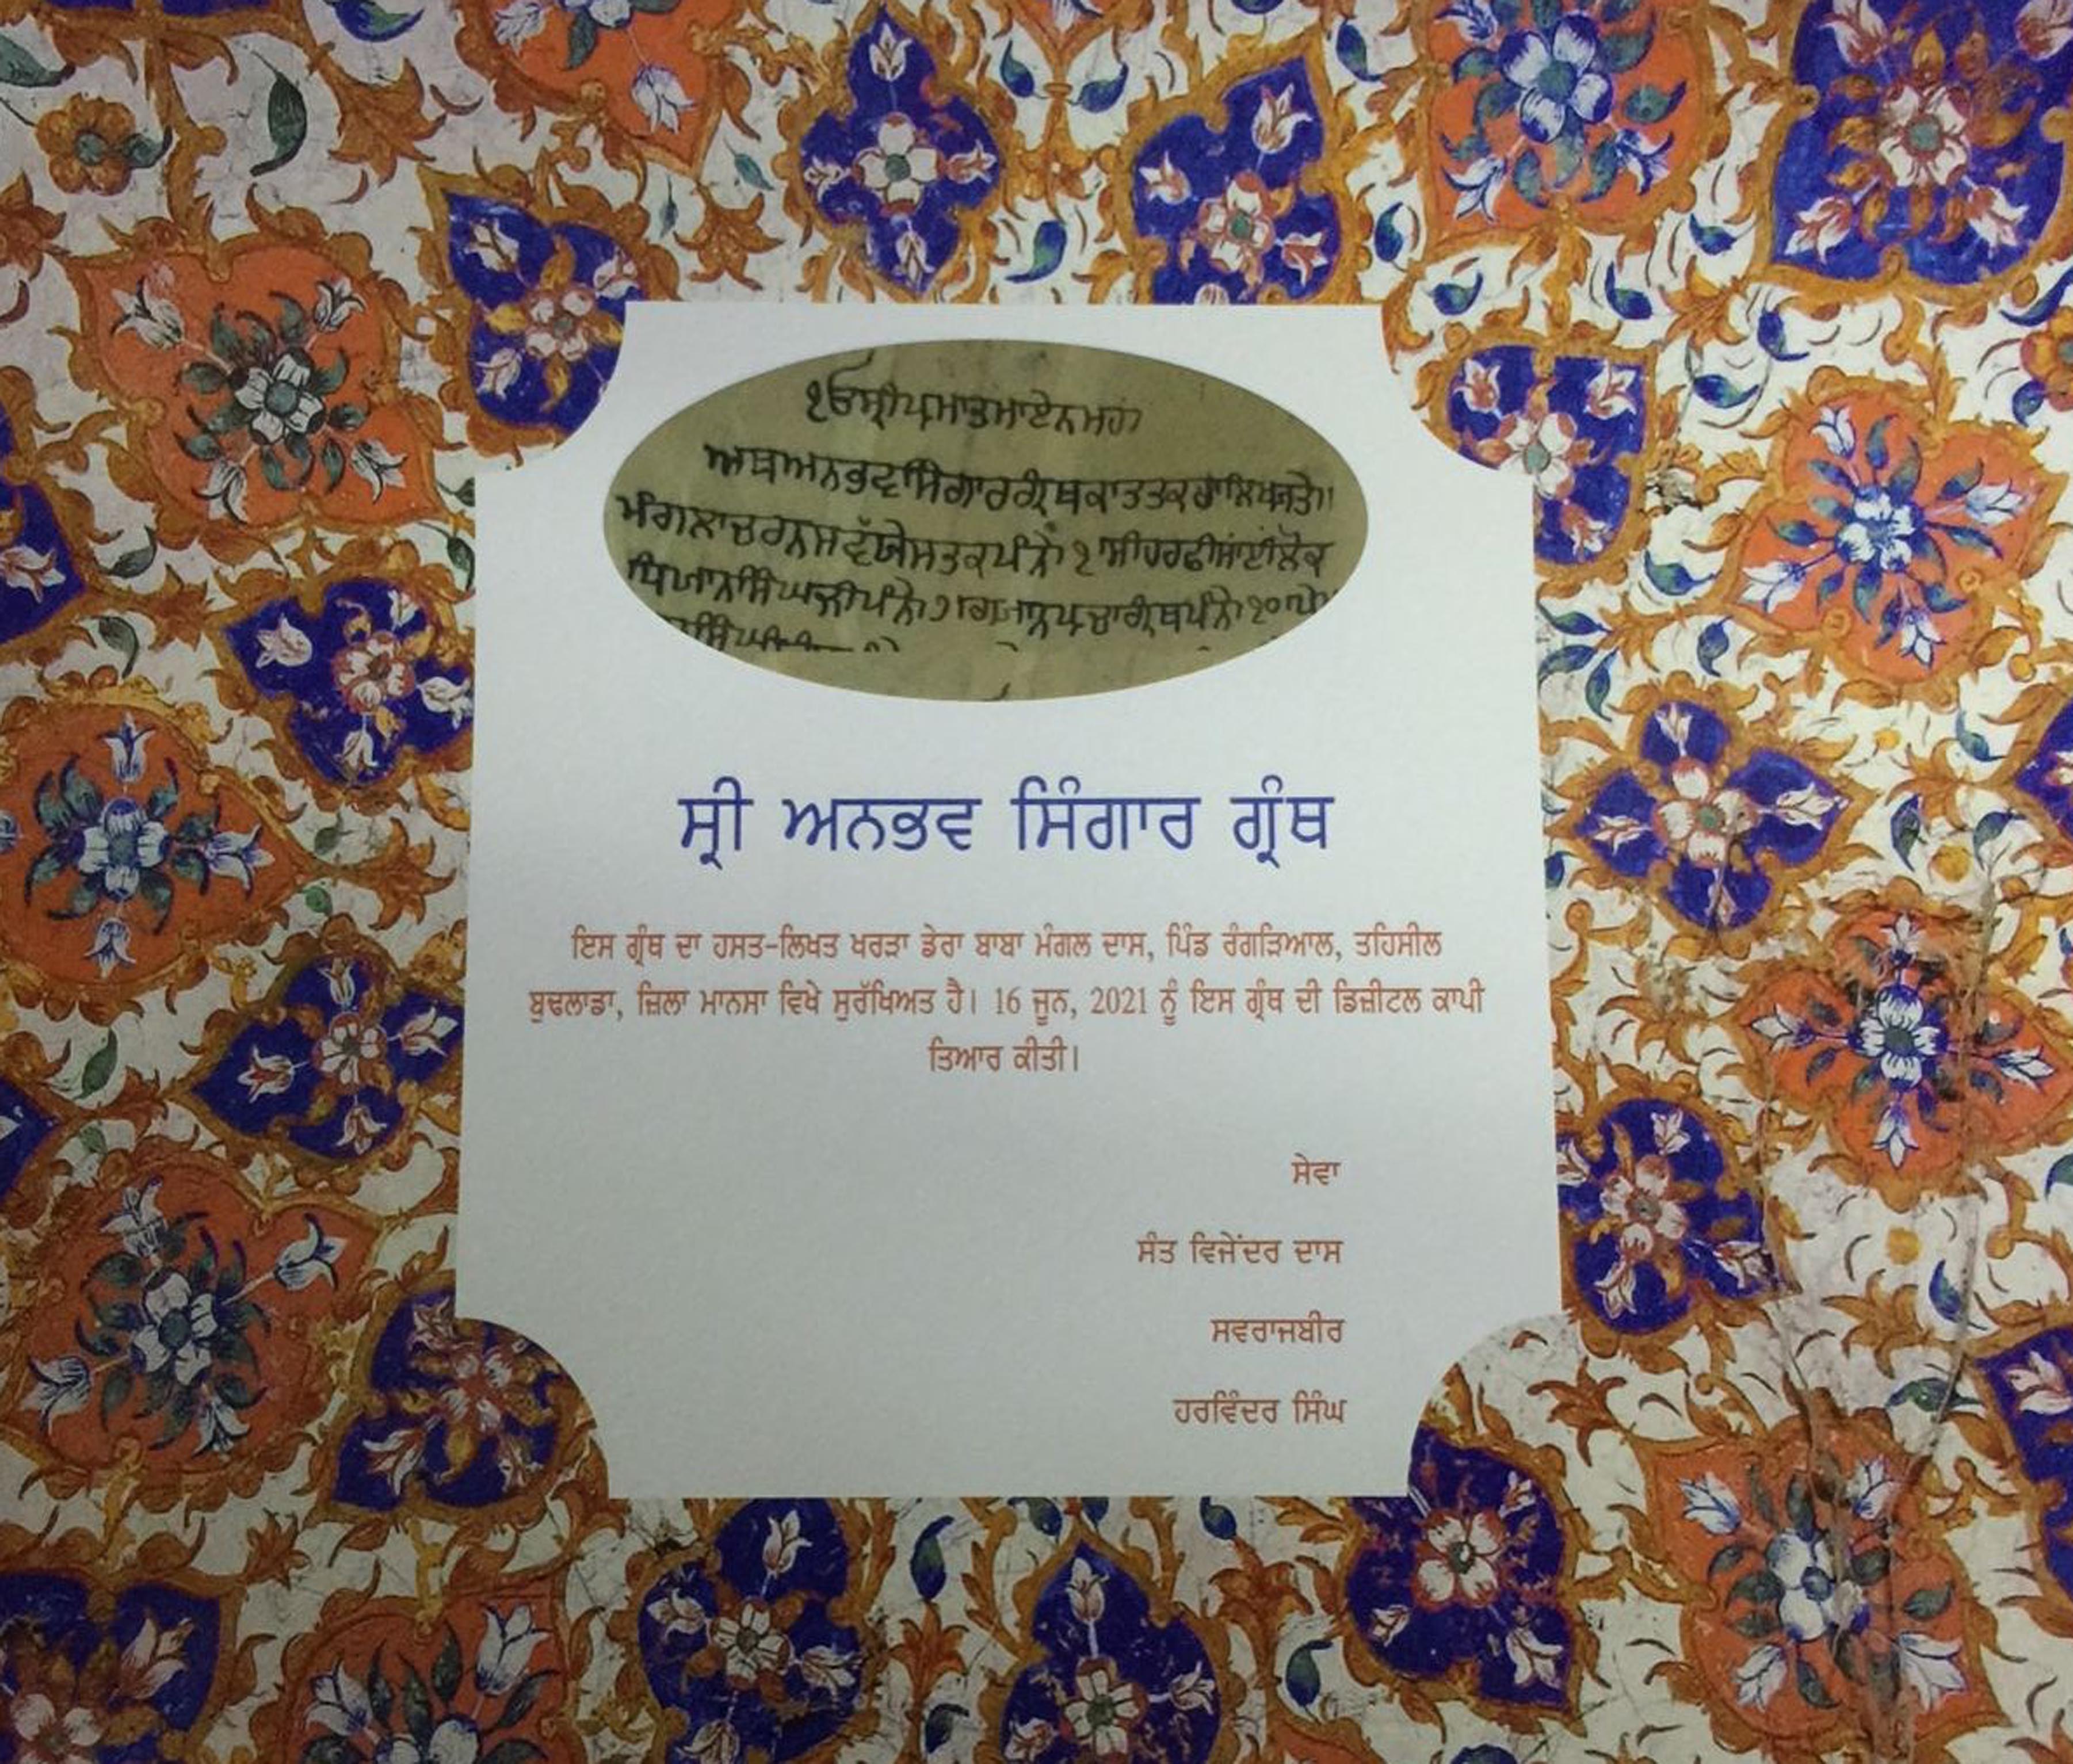 ੧ਓ ਸ੍ਰੀ ਪ੍ਰਮਾਤਮਾਏ ਨਮਹ
ਅਥ ਅਨਭਵ ਸਿੰਗਾਰ ਗ੍ਰੰਥ ਕਾ ਤਤਕਰਾ ਲਿਖਯਤੇ॥
ਮੰਗਲਾਚਰਨ ਸਵੱਯੇ ਸਤਕ ਪੰਨੇ ੧ ਸੀਹਰਫੀ ਸਾਂਈਂ ਲੋਕ
ਧਿਆਨ ਸਿੰਘ ਕੀ ਪੰਨੇ ੭ ਗਿਆਨ ਪ੍ਰਚਾ ਗ੍ਰੰਥ ਪੰਨੇ ੧੦
ਸ੍ਰੀ ਅਨਭਵ ਸਿੰਗਾਰ ਗ੍ਰੰਥ
ਇਸ ਗ੍ਰੰਥ ਦਾ ਹਸਤ-ਲਿਖਤ ਖਰੜਾ ਡੇਰਾ ਬਾਬਾ ਮੰਗਲ ਦਾਸ, ਪਿੰਡ ਰੰਗੜਿਆਲ, ਤਹਿਸੀਲ
ਬੁਢਲਾਡਾ, ਜ਼ਿਲਾ ਮਾਨਸਾ ਵਿਖੇ ਸੁਰੱਖਿਅਤ ਹੈ। 16 ਜੂਨ, 2021 ਨੂੰ ਇਸ ਗ੍ਰੰਥ ਦੀ ਡਿਜ਼ੀਟਲ ਕਾਪੀ
ਤਿਆਰ ਕੀਤੀ।
ਸੇਵਾ
ਸੰਤ ਵਿਜੇਂਦਰ ਦਾਸ
ਸਵਰਾਜਬੀਰ
ਹਰਵਿੰਦਰ ਸਿੰਘ